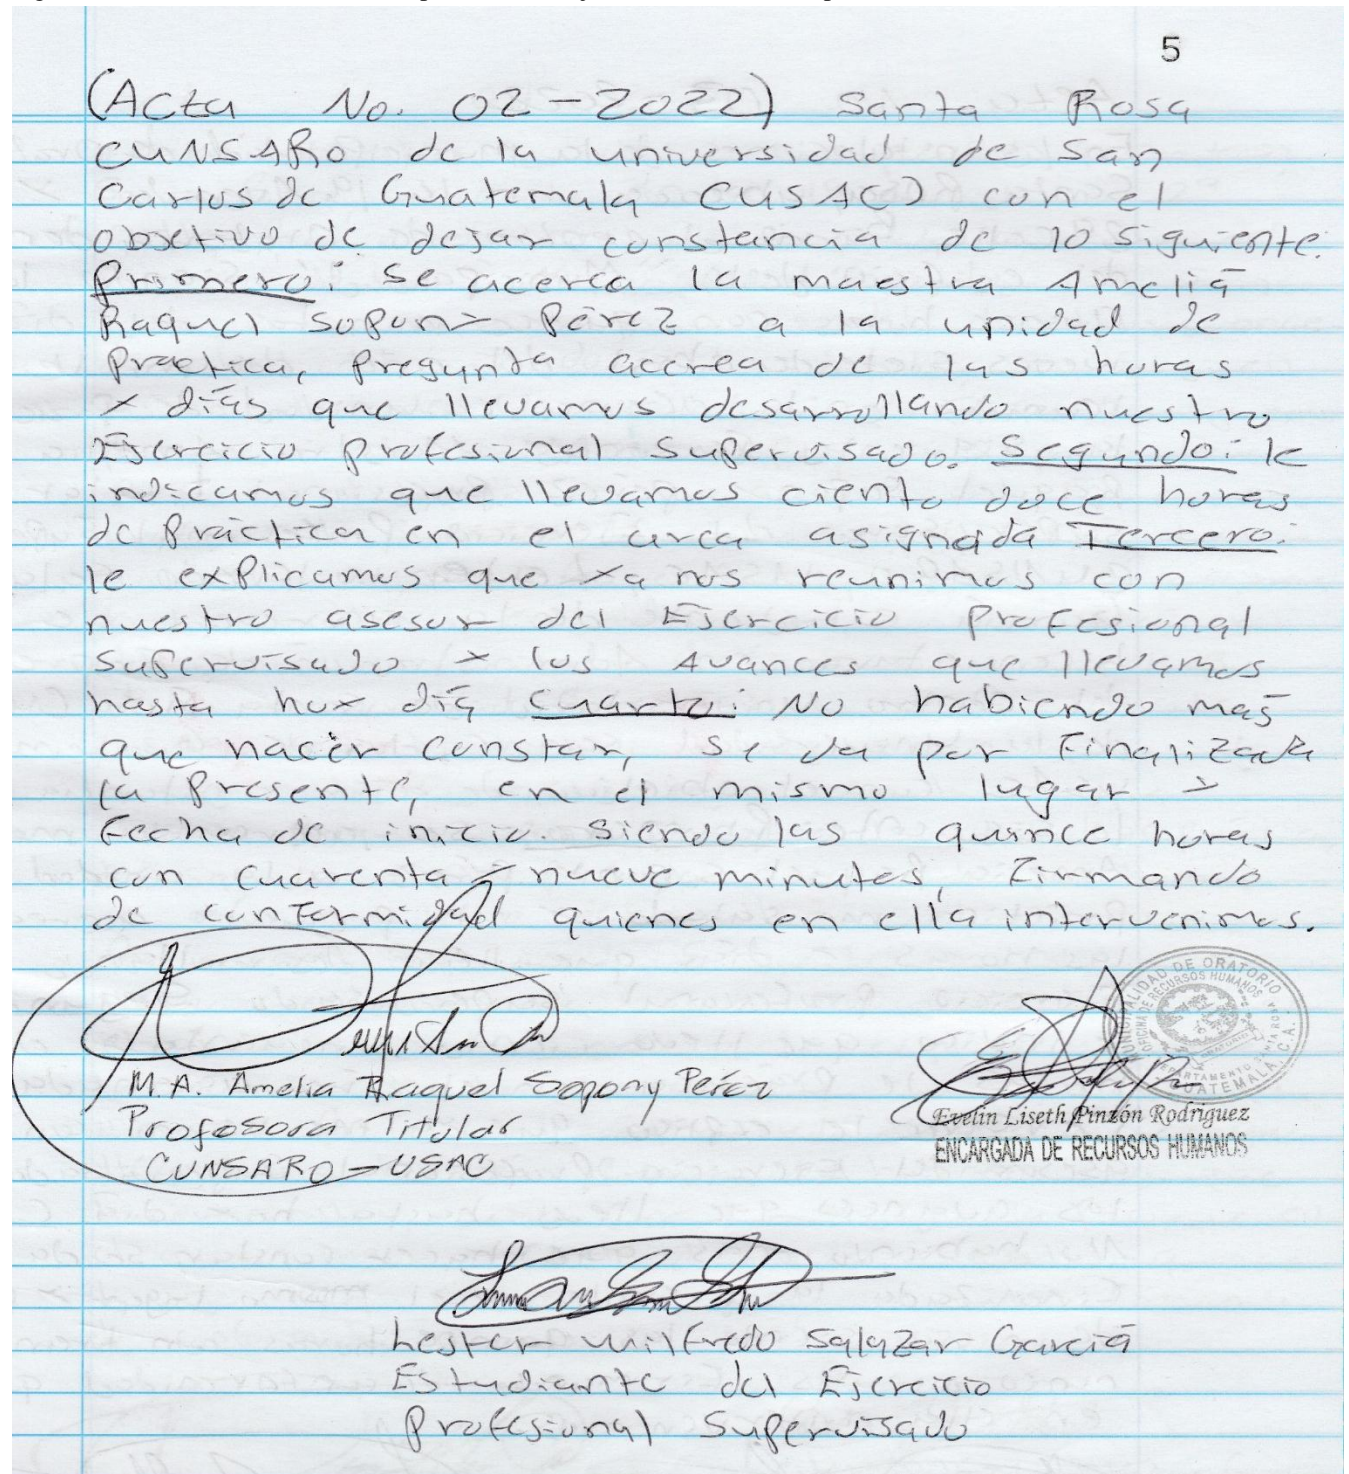 5
(Acta No. 02-2022) Santa Rosa
CUNSARO de la universidad de San
Carlos de Guatemala CUSAC) con el
objetivo de dejar constancia de lo siguiente.
Primero: se acerca la maestra Amelia
Raquel Sopony Pérez a la unidad de
Practica, Pregunta acerca de las horas
y días que llevamos desarrollando nuestro
Ejercicio profesional Supervisado. Segundo: le
indicamos que llevamos ciento doce horas
de Práctica en el area asignada Tercero:
le explicamos que ya nos reunimos con
nuestro asesor del Ejercicio Profesional
Supervisado y los Avances que llevamos
hasta hoy día Cuarto: No habiendo más
que hacer constar, se da por Finalizada
la Presente, en el mismo lugar y
Fecha de inicio. Siendo las quince horas
con cuarenta y nueve minutos, Firmando
de conformidad quienes en ella intervenimos.
M.A. Amelia Raquel Sopony Peréz
Profesora Titular
CUNSARO-USAC
MUNICIPALIDAD DE ORATORIO
OFICINA DE RECURSOS HUMANOS
DEPARTAMENTO
GUATEMALA, C.A.
Evelin Liseth Pinzón Rodriguez
ENCARGADA DE RECURSOS HUMANOS
Lester Wilfredo Salazar García
Estudiante del Ejercicio
Profesional Supervisado